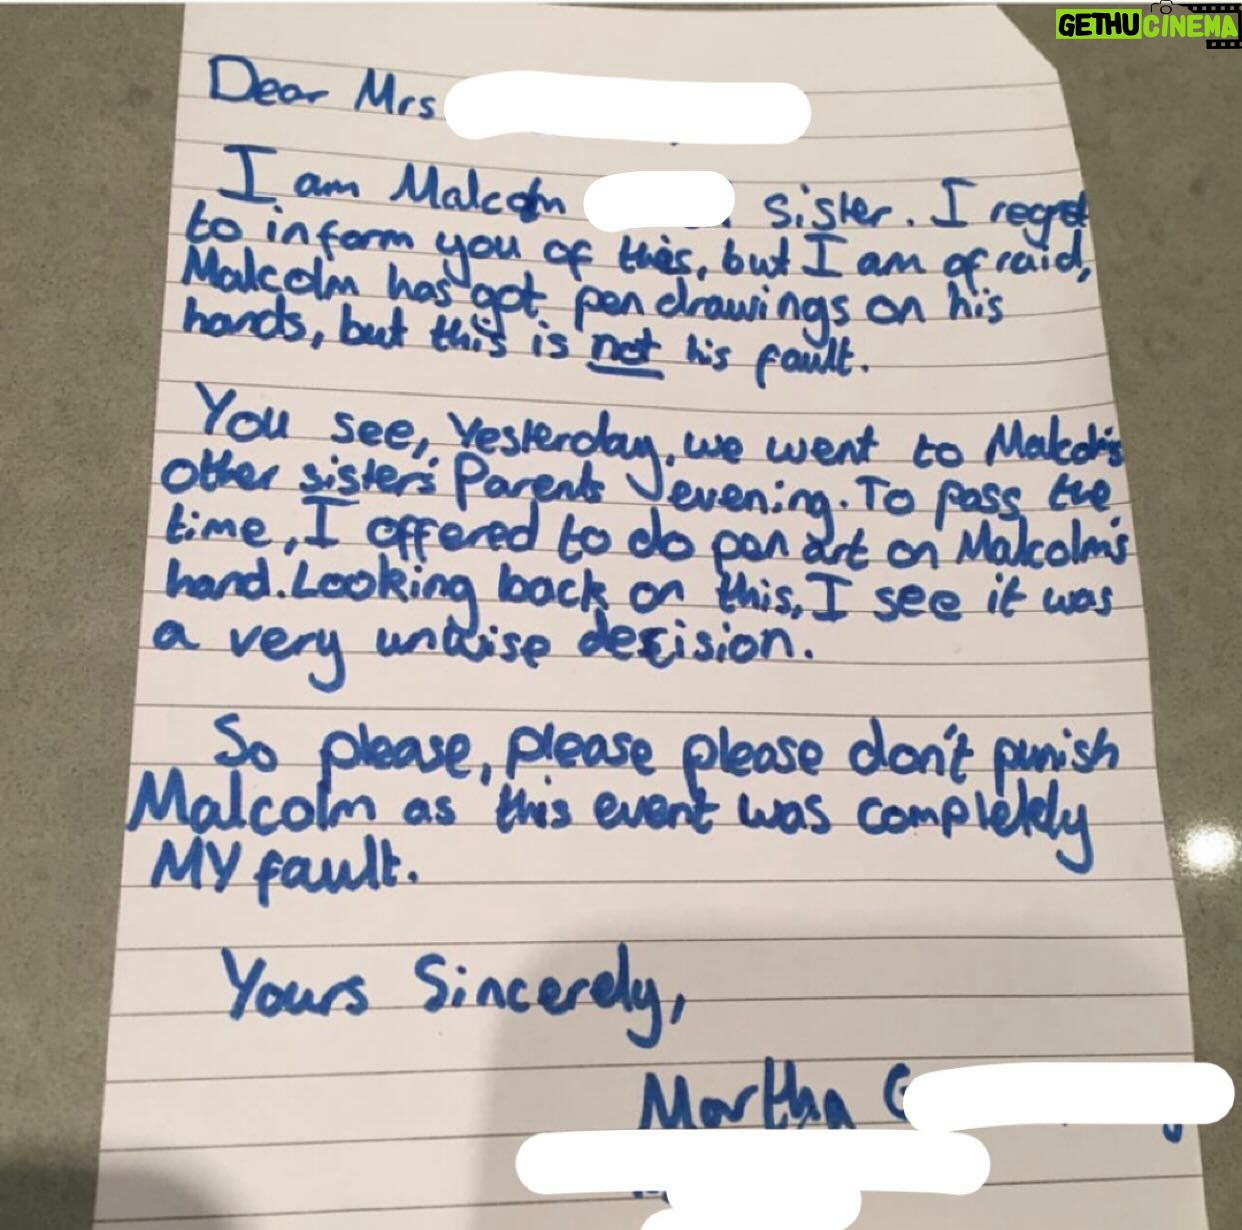 GETHUCINEMA
Dear Mrs
I am Malcolm sister. I regret
to inform you of this, but I am afraid,
Malcolm has got pen drawings on his
hands, but this is not his fault.
You see, Yesterday, we went to Malcolm's
other sister's Parents evening. To pass the
time, I offered to do pen art on Malcolm's
hand. Looking back on this, I see it was
a very unwise decision.
So please, please please don't punish
Malcolm as this event was completely
MY fault.
Yours Sincerely,
Martha G